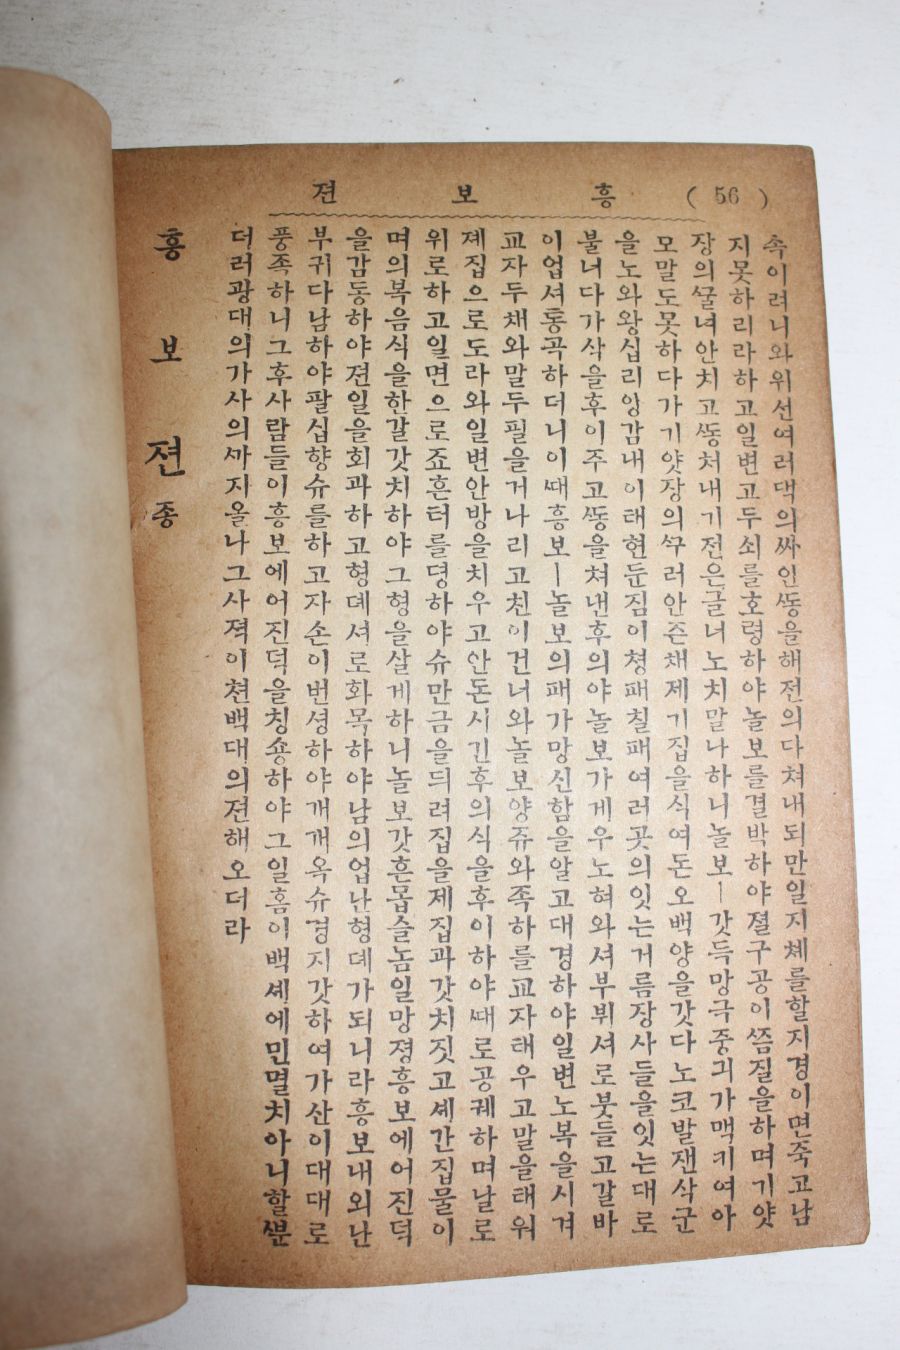 ( 56 ) 흥 보 젼
속이려니와위선여러댁의싸인ᄯᅩᆼ을해전의다쳐내되만일지쳬를할지경이면죽고남
지못하리라하고일변고두쇠를호령하야놀보를결박하야졀구공이ᄶᅵᆷ질을하며기얏
장의ᄭᅮᆯ녀안치고ᄯᅩᆼ처내기전은글너노치말나하니놀보ㅣ갓득망극중긔가맥키여아
모말도못하다가기얏장의ᄭᅮ러안즌채제기집을식여돈오백양을갓다노코발잰삭군
을노와왕십리앙감내이태현둔짐이청패칠패여러곳의잇는거름장사들을잇는대로
불너다가삭을후이주고ᄯᅩᆼ을쳐낸후의야놀보가게우노혀와셔부뷔셔로붓들고갈바
이업셔통곡하더니이ᄯᅢ흥보ㅣ놀보의패가망신함을알고대경하야일변노복을시겨
교자두채와말두필을거나리고친이건너와놀보양쥬와족하를교자태우고말을태워
졔집으로도라와일변안방을치우고안돈시긴후의식을후이하야ᄯᅢ로공궤하며날로
위로하고일면으로죠흔터를뎡하야슈만금을듸려집을제집과갓치짓고셰간집물이
며의복음식을한갈갓치하야그형을살게하니놀보갓흔몹슬놈일망졍흥보에어진덕
을감동하야젼일을회과하고형뎨셔로화목하야남의업난형뎨가되니라흥보내외난
부귀다남하야팔십향슈를하고자손이번셩하야개개옥슈경지갓하여가산이대대로
풍족하니그후사람들이흥보에어진덕을칭숑하야그일홈이백셰에민멸치아니할ᄲᅮᆫ
더러광대의가사의ᄭᅡ지올나그사젹이쳔백대의젼해오더라
흥 보 젼 종